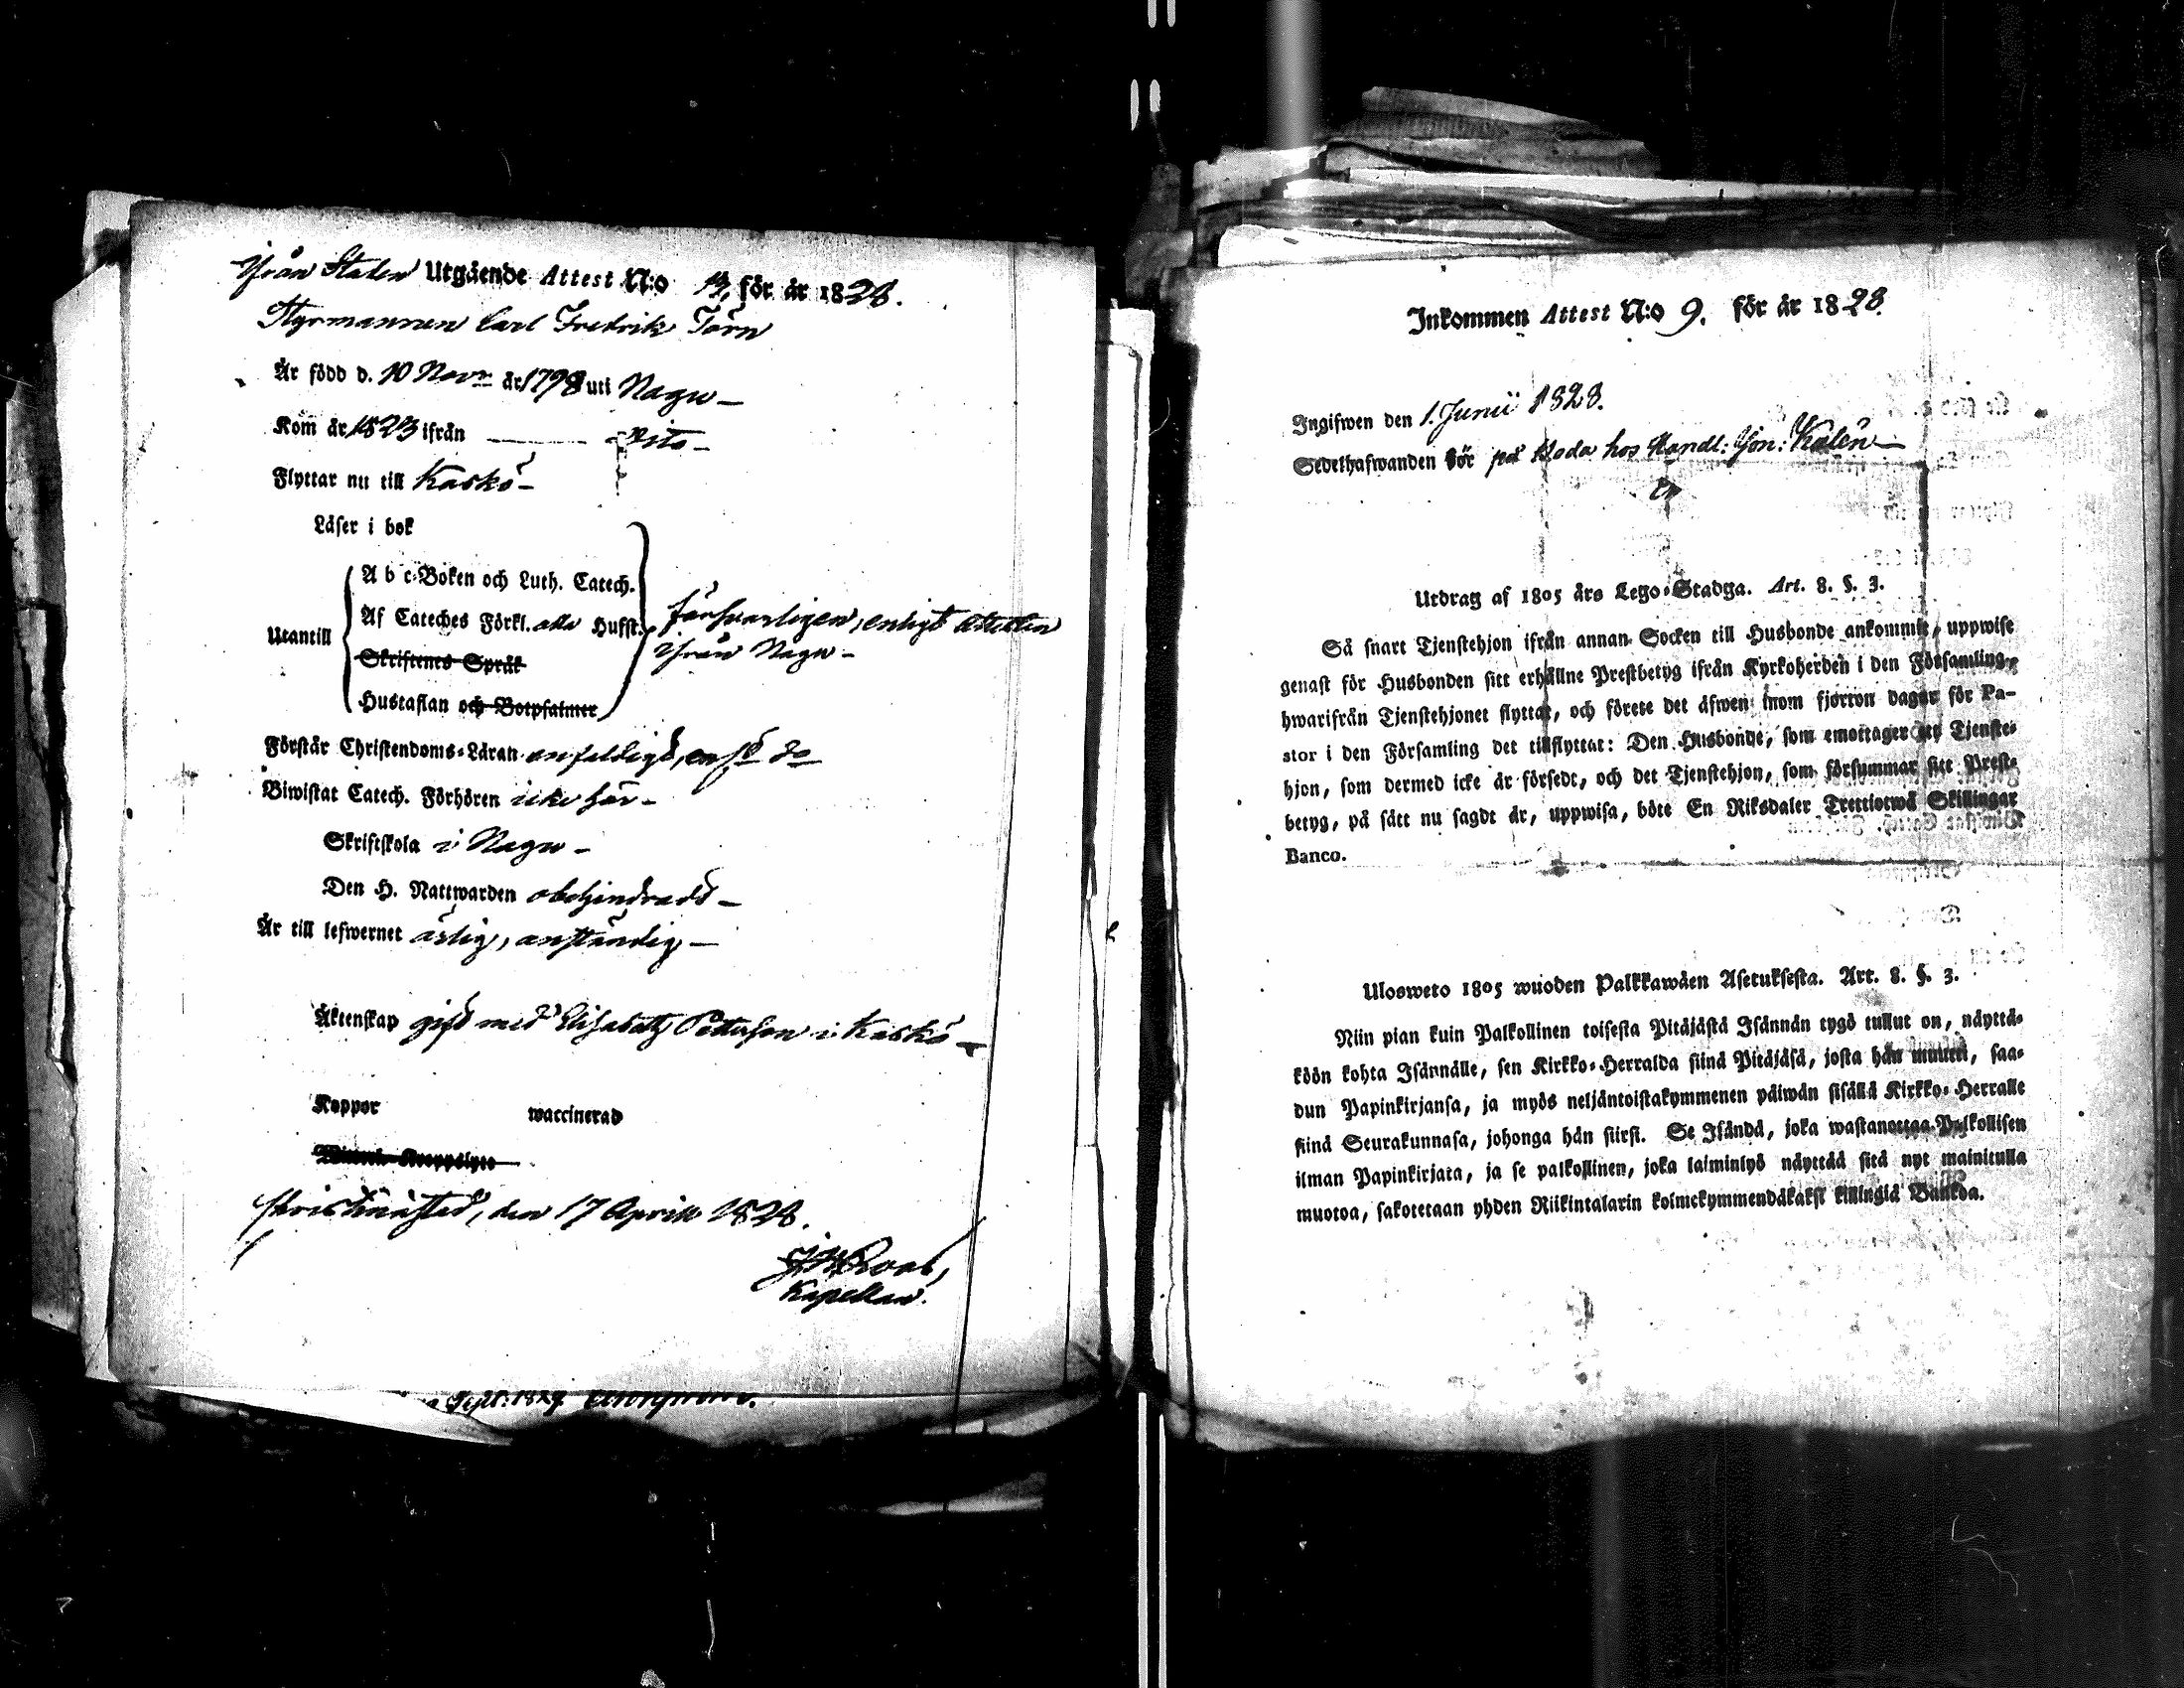 ifrån Staden Utgående Attest N:o 13, för år 1828.
Styrmannen Carl Fredrik Törn
Är född d. 10 Novr år 1798 uti Nagu –
Kom år 1823 ifrån — dito –
Flyttar nu till Kaskö –
Läser i bok
A b c-Boken och Luth. Catech.
Af Cateches Förkl. alla Hufst. försvarligen, enligt attesten
Utantill ifrån Nagu –
Skriftenes Språk
Hustaflan och Botpsalmer
Förstår Christendoms-Läran enfaldigt, enl. do
Biwistat Catech. Förhören icke här –
Skriftskola i Nagu –
Den H. Nattwarden obehindradt –
Är till lefwernet ärlig, anständig –
Äktenskap gift med Elisabeth Petterson i Kaskö –
Koppor waccinerad
Christinæsted, den 17 Aprill 1828.
Kapellan.
Sept: 1827
Inkommen Attest N:o 9. för år 1828.
Ingifwen den 1. Junii 1828.
Sedelhafwanden bör på Boda hos Handl: Jon: Kalén
Utdrag af 1805 års Lego-Stadga. Art. 8. §. 3.
Så snart Tjenstehjon ifrån annan Socken till Husbonde ankommit, uppwise
genast för Husbonden sitt erhållne Prestbetyg ifrån Kyrkoherden i den Församling,
hwarifrån Tjenstehjonet flyttat, och förete det äfwen inom fjorton dagar för Pa-
stor i den Församling det tillflyttat: Den Husbonde, som emottager ett Tjenste-
hjon, som dermed icke är försedt, och det Tjenstehjon, som försummar sitt Prest-
betyg, på sätt nu sagdt är, uppwisa, böte En Riksdaler Trettiotwå Skillingar
Banco.
Ulosweto 1805 wuoden Palkkawäen Asetuksesta. Art. 8. §. 3.
Niin pian kuin Palkollinen toisesta Pitäjästä Isännän tygö tullut on, näyttä-
köön kohta Isännälle, sen Kirkko-Herralda siinä Pitäjäsä, josta hän muutti, saa-
dun Papinkirjansa, ja myös neljäntoistakymmenen päiwän sisällä Kirkko-Herralle
siinä Seurakunnasa, johonga hän siirsi. Se Isändä, joka wastanottaa Palkollisen
ilman Papinkirjata, ja se palkollinen, joka laiminlyö näyttää sitä nyt mainitulla
muotoa, sakotetaan yhden Riikintalarin kolmekymmendäkaksi killingiä Bankoa.